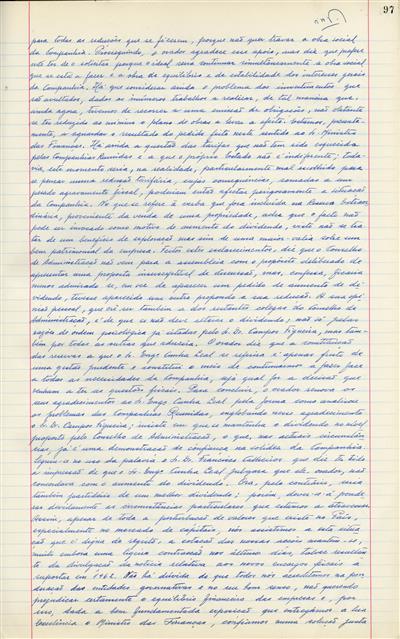 97
para todas as reduções que se fizerem, porque não quer travar a obra social
da Companhia. Prosseguindo, o orador agradece esse apoio, mas diz que prefere
não ter de o solicitar porque o ideal seria continuar simultaneamente a obra social
que se está a fazer e a obra de equilíbrio e de estabilidade dos interesses gerais
da Companhia. Há que considerar ainda o problema dos investimentos que
são avultados, dados os inúmeros trabalhos a realizar, de tal maneira que,
ainda agora, tivemos de recorrer a uma emissão de obrigações, não obstante
se ter reduzido ao mínimo o plano de obras a levar a efeito. Estamos, presente-
mente, a aguardar o resultado do pedido feito neste sentido ao Sr. Ministro
das Finanças. Há ainda a questão das tarifas que não tem sido esquecida
pelas Companhias Reunidas e a que o próprio Estado não é indiferente; toda-
via, este momento seria, na realidade, particularmente mal escolhido para
se pensar numa redução tarifária, cujas consequências, somadas a um
pesado agravamento fiscal, poderiam então afectar perigosamente a situação
da Companhia. No que se refere à verba que fora incluída na Reserva Extraor-
dinária, proveniente da venda de uma propriedade, acha que o facto não
pode ser invocado como motivo de aumento do dividendo, visto não se tra-
tar de um benefício de exploração mas sim de uma maior valia sobre um
bem patrimonial da empresa. Feitos estes esclarecimentos, diz que o Conselho
de Administração não vem para a assembleia com o propósito deliberado de
apresentar uma proposta insusceptível de discussão, mas, confessa, ficaria
menos admirado se, em vez de aparecer um pedido de aumento de di-
videndo, tivesse aparecido um outro propondo a sua redução. A sua opi-
nião pessoal, que crê ser também a dos restantes colegas do Conselho de
Administração, é de que se não deve alterar o dividendo; não só pelas
razões de ordem psicológica já citadas pelo Sr. Dr. Campos Figueira, mas tam-
bém por todas as outras que aduzira. O orador diz que a constituição
das reservas a que o Sr. Engº Cunha Leal se referira é apenas fruto de
uma gestão prudente e constitui o meio de continuarmos a fazer face
a todas as necessidades da Companhia, seja qual for a decisão que
venham a ter as questões fiscais. Para concluir, o orador renova os
seus agradecimentos ao Sr. Engº Cunha Leal pela forma como analisou
os problemas das Companhias Reunidas, englobando nesse agradecimento
o Sr. Dr. Campos Figueira; insiste em que se mantenha o dividendo no nível
proposto pelo Conselho de Administração, o que, nas actuais circunstân-
cias, já é uma demonstração de confiança na solidez da Companhia.
Seguiu-se no uso da palavra o Sr. Dr. Francisco Calheiros que diz ter tido
a impressão de que o Sr. Engº Cunha Leal julgara que ele, orador, não
concordava com o aumento do dividendo. Ora, pelo contrário, seria
também partidário de um melhor dividendo; porém, deve-se ponde-
rar devidamente as circunstâncias particulares que estamos a atravessar.
Assim, apesar de toda a perturbação de valores que existe no País,
especialmente no mercado de capitais, nós assistimos a esta situa-
ção que é digna de registo: a cotação das nossas acções mantém-se,
muito embora uma ligeira contracção nos últimos dias, talvez resultan-
te da divulgação da notícia relativa aos novos encargos fiscais a
suportar em 1962. Não há dúvida de que todos nós acreditamos na pon-
deração das entidades governativas e no seu bom senso, não querendo
prejudicar certamente o equilíbrio financeiro das empresas e, por
isso, dada a bem fundamentada exposição que entregámos a Sua
Excelência o Ministro das Finanças, confiamos numa solução justa